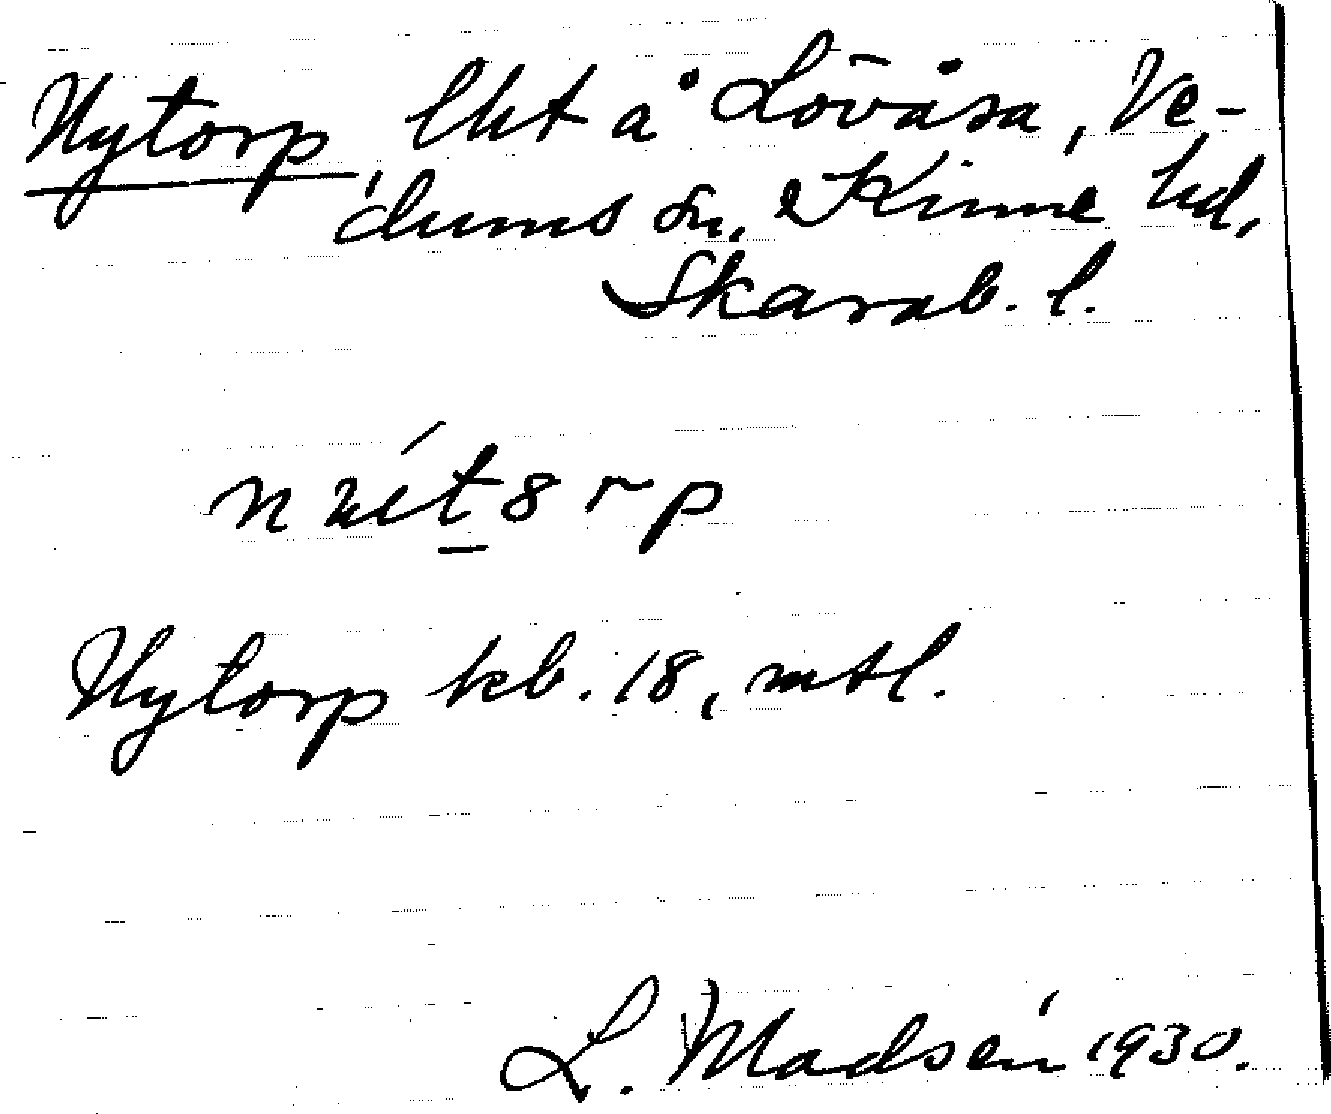 Nytorp, lht å Lövåsa, Ve-
dums sn, Kinne hd,
Skarab. l.
Nytorp kb. 18, mtl.
L. Madsén 1930.